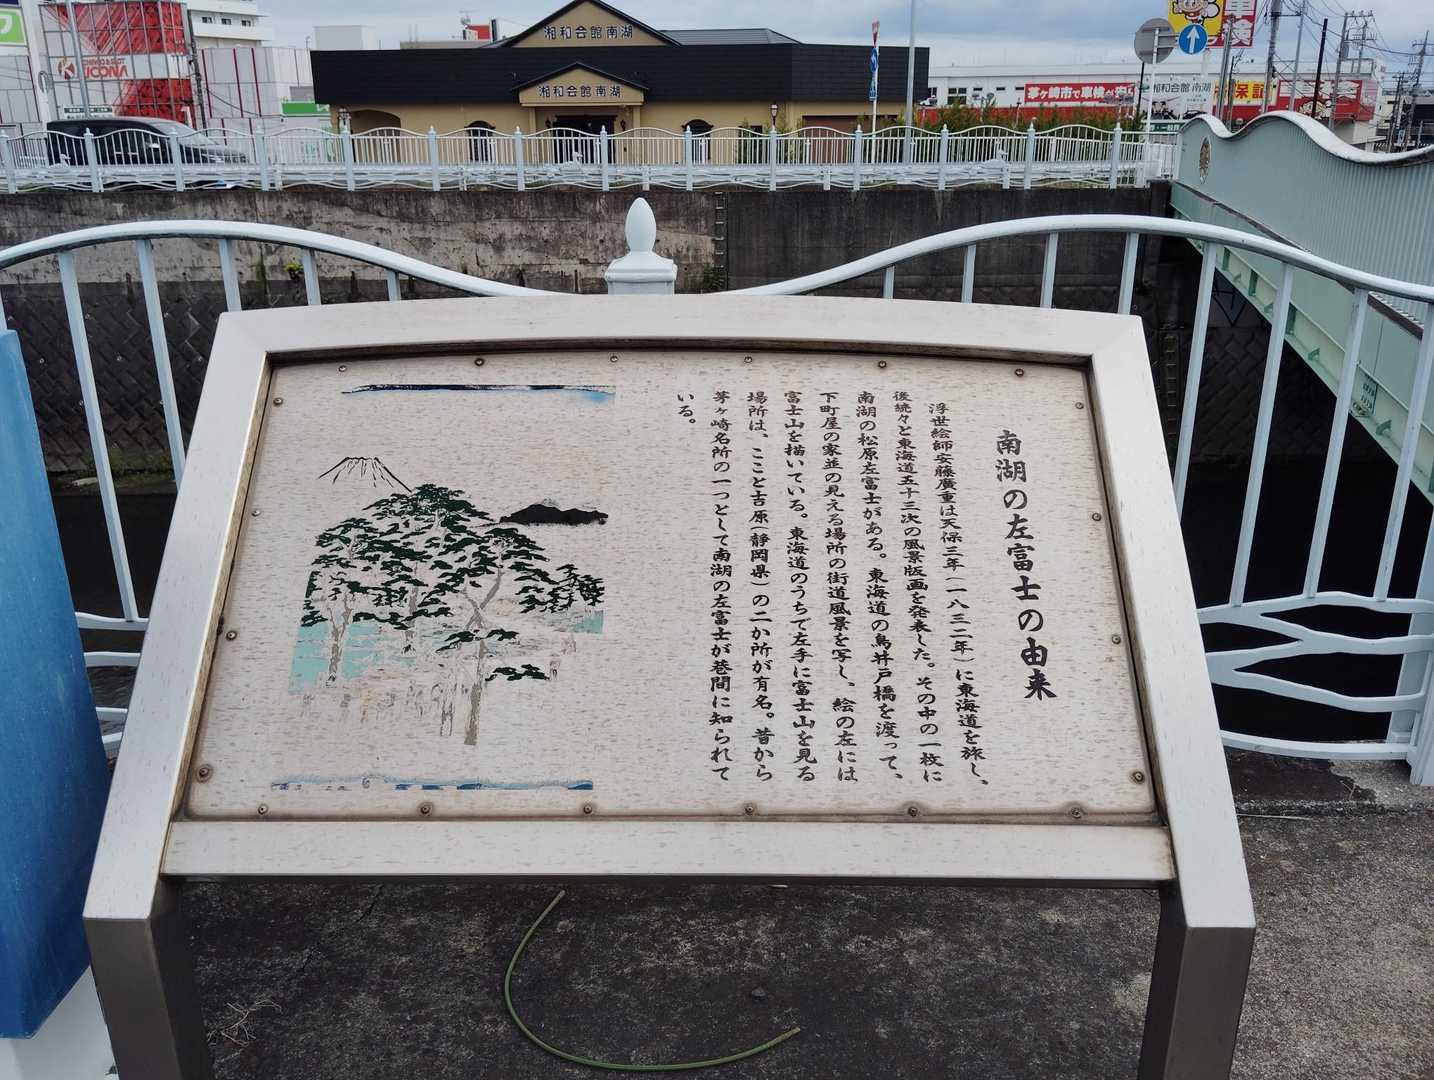 湘和会館南湖
湘和会館南湖
KICONA
茅ヶ崎市で車検が安い
湘和会館南湖
保証
車検
南湖の左富士の由来
浮世絵師安藤廣重は天保三年(一八三二年)に東海道を旅し、
後続々と東海道五十三次の風景版画を発表した。その中の一枚に
南湖の松原左富士がある。東海道の鳥井戸橋を渡って、
下町屋の家並の見える場所の街道風景を写し、絵の左には
富士山を描いている。東海道のうちで左手に富士山を見る
場所は、ここと吉原(静岡県)の二か所が有名。昔から
茅ヶ崎名所の一つとして南湖の左富士が巷間に知られて
いる。